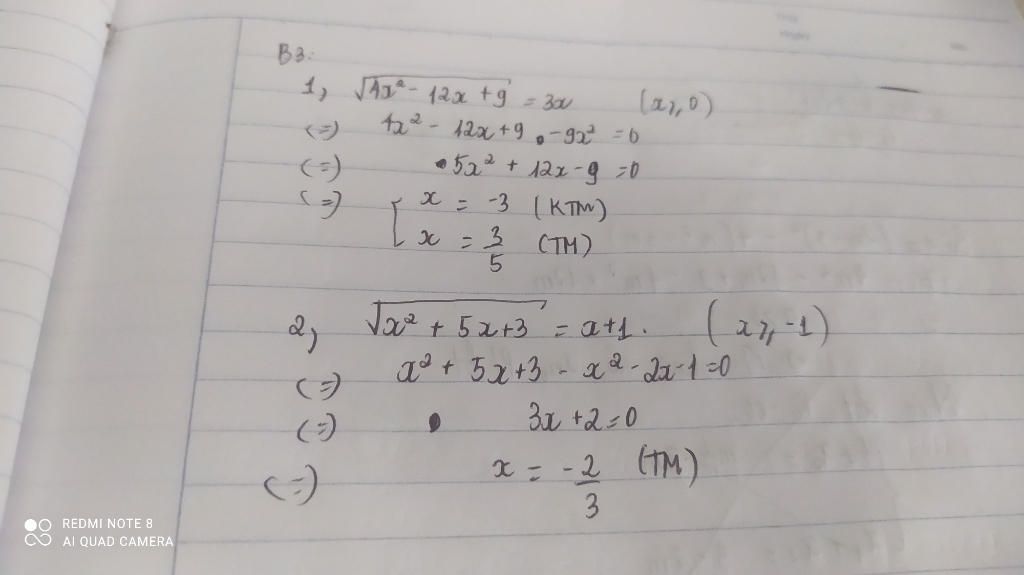 B3:
1, √4x² - 12x + 9 = 3x (x ≥ 0)
(=) 4x² - 12x + 9 - 9x² = 0
(=) 5x² + 12x - 9 = 0
(=) [ x = -3 (KTM)
x = 3/5 (TM)
2, √x² + 5x + 3 = x + 1. (x ≥ -1)
(=) x² + 5x + 3 - x² - 2x - 1 = 0
(=) 3x + 2 = 0
(=) x = -2/3 (TM)
REDMI NOTE 8
AI QUAD CAMERA